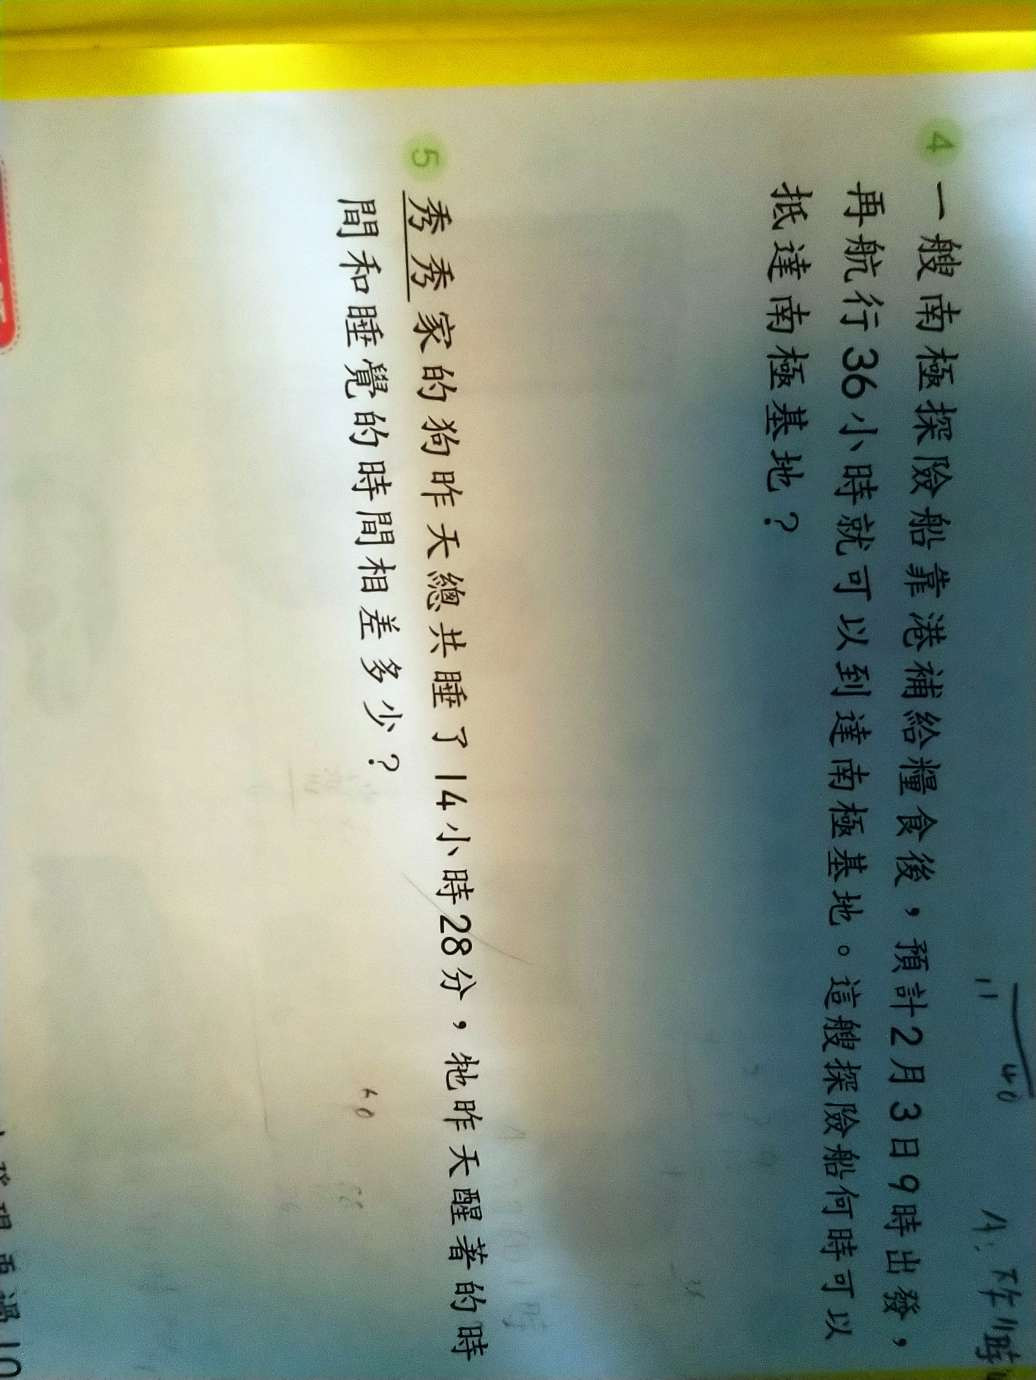 11 40
A:
4 一艘南極探險船靠港補給糧食後，預計2月3日9時出發，
再航行36小時就可以到達南極基地。這艘探險船何時可以
抵達南極基地？
5 秀秀家的狗昨天總共睡了14小時28分，牠昨天醒著的時
間和睡覺的時間相差多少？
60